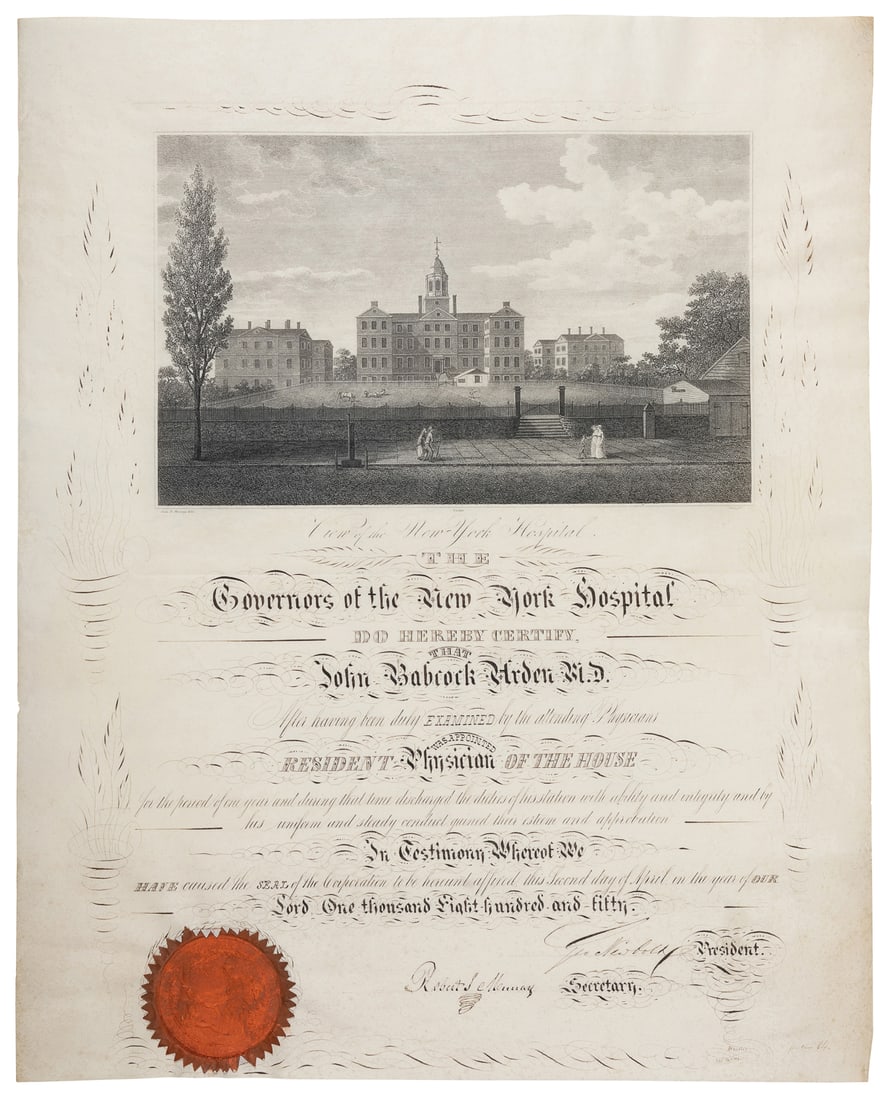 View of the New-York Hospital.
THE
Governors of the New York Hospital
DO HEREBY CERTIFY,
THAT
John Babcock Arden M.D.
After having been duly EXAMINED by the attending Physicians
WAS APPOINTED
RESIDENT Physician OF THE HOUSE
for the period of one year and during that time discharged the duties of his station with ability and integrity and by
his uniform and steady conduct gained their esteem and approbation
In Testimony Whereof We
HAVE caused the SEAL of the Corporation to be hereunto affixed this Second day of April in the year of OUR
Lord One thousand Eight hundred and fifty.
Geo Newbold President.
Robert I Murray Secretary.